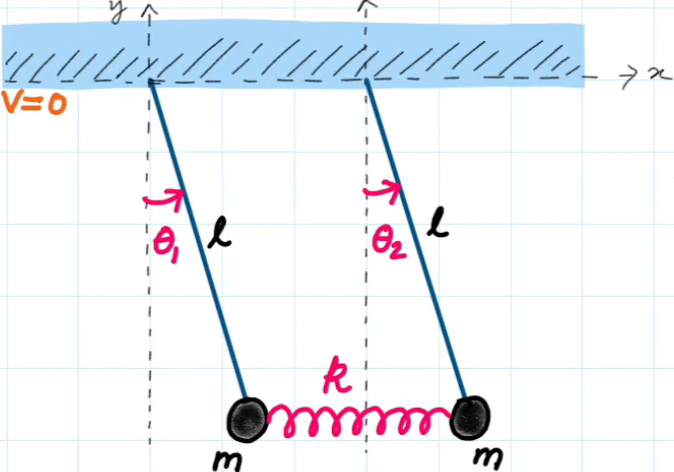 y
x
V=0
θ₁
l
θ₂
l
k
m
m